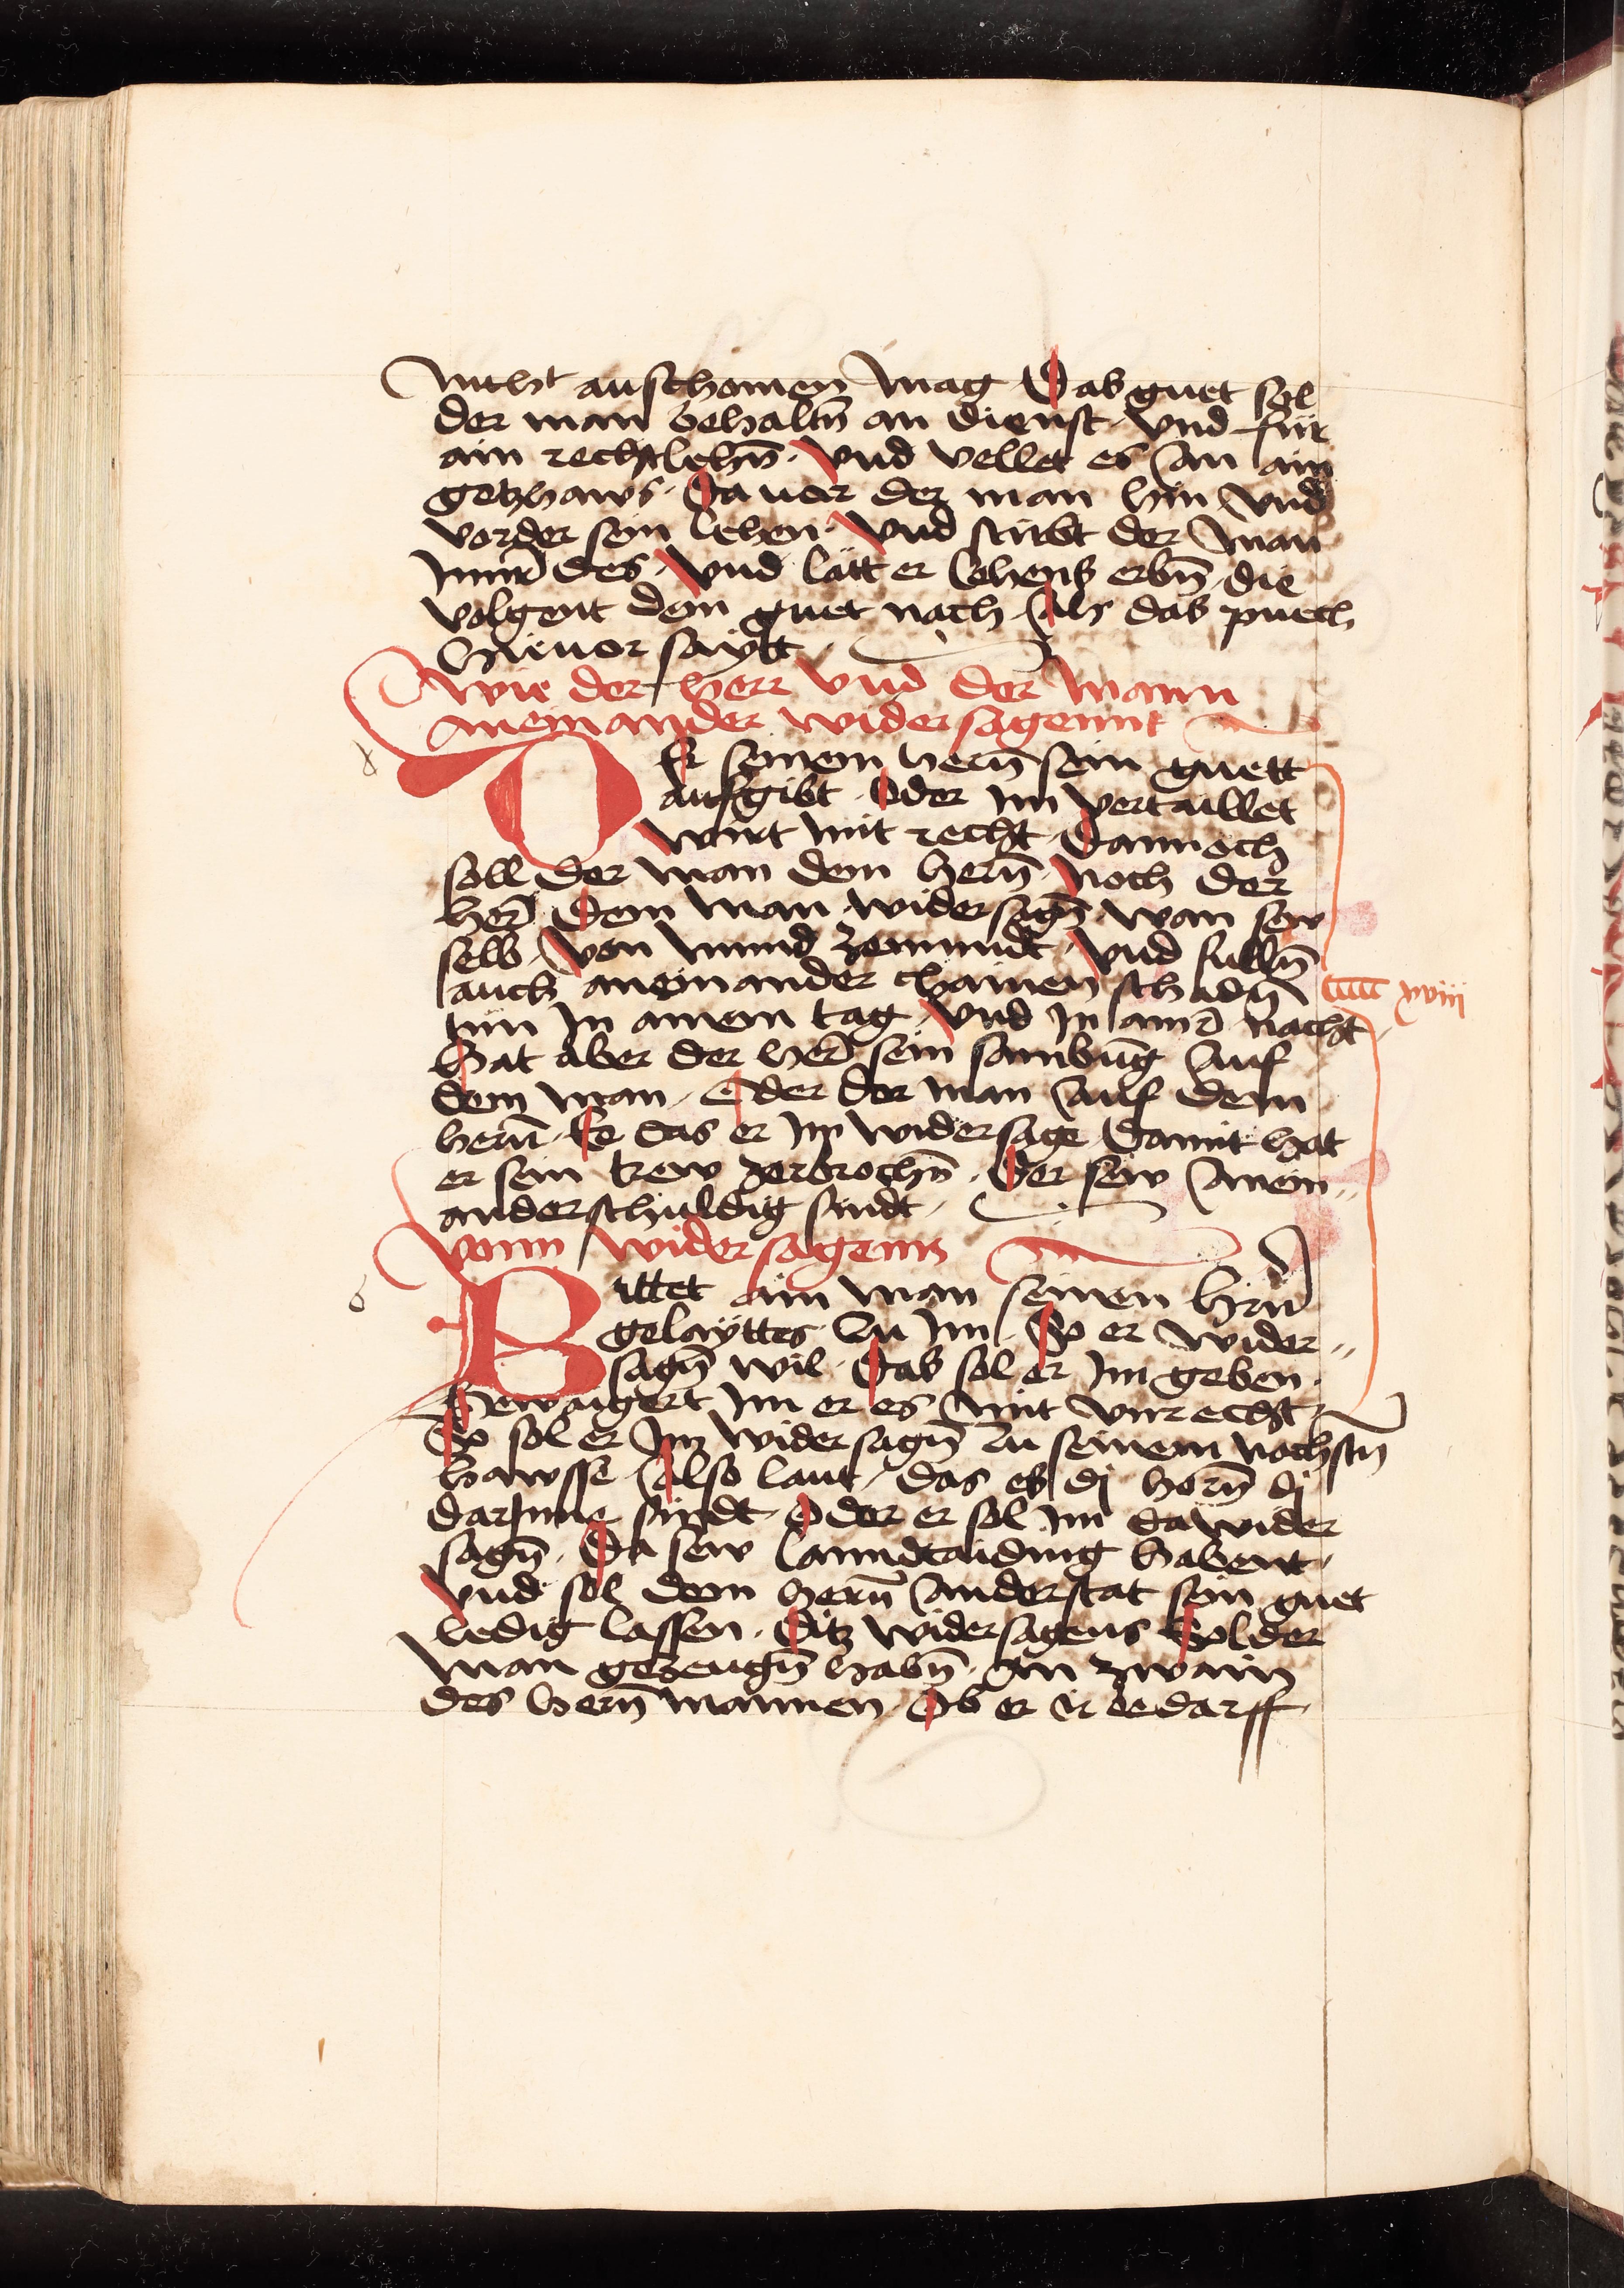 nicht auschomen mag Das guet sol
der man behaltn̄ an dienst · vnd für
ain rechtlehn̄ · Vnd vellet es an ain
getzhaws · Da uar der man hin vnd
vorder sein lehen · Vnd stirbt der man
Inner des · Vnd lätt er lehens erbn̄ · die
volgent dem guet nach · Als das puech
hieuor saytt ·
Wie der herr vnd der mann
aneinander widersagennt
Er seinem hern̄ sein guett
aufgibt · Oder im vertaillet
wirt mit recht · Dannoch
soll der man dem hern̄ · Noch der
her̄ · Dem man widersagn̄ · wan sew
selb · Von mund zemundt · Vnd sulln̄
auch aneinander chainen schadn̄
tun In ainem tag · Vnd In ainer nacht ·
Hat aber der her̄ sein sambūg auf
dem man · Oder der man auf dem
hern̄ · Ee das er im widersage Damit hat
er sein trew zerbrochn̄ · Der sew anein„
ander schuldig sindt ·
Vonn widersagenns
Bittet ain man seinen hrn̄
gelayttes · Zu im · So er wider„
sagn̄ wil · Das sol er im geben ·
Gewaigert im er es mit vnrecht ·
So sol er im widersagn̄ zu seinem nachstn̄
hawsse · Also laut · das es dj horn̄ dj
darInne sindt · Oder er sol im da wider
sagn̄ · Da sew lanndtaiding habent ·
Vnd sol dem hern̄ anderstat sein guet
ledig lassen · Ditz widersagens Sol der
man gezeugn̄ habn̄ · An zwain
des hern̄ mannen · Ob er ir bedarff
xviij